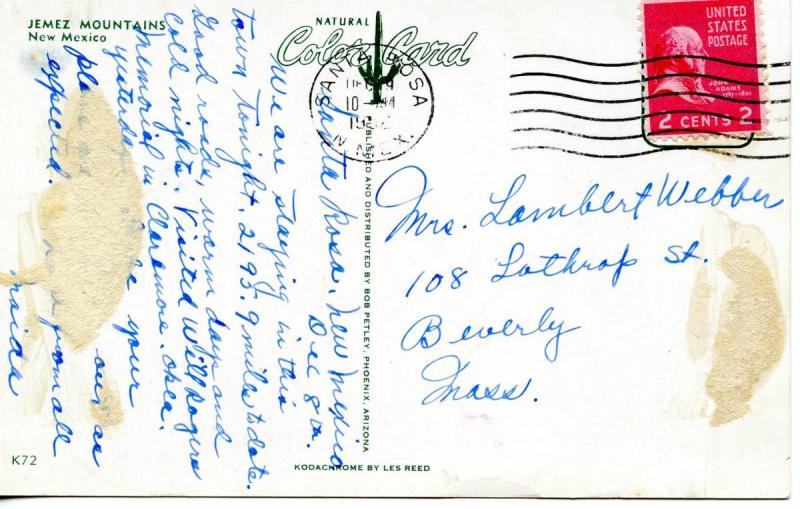 JEMEZ MOUNTAINS
New Mexico
NATURAL
Color Card
Santa Rosa, New Mexico
Dec 8th.
We are staying in this
town tonight. 2195.9 miles to date.
Good roads, warm days and
cold nights. Visited Will Rogers
Memorial in Claremore, Okla.
yesterday
be your
place
our
as
expected.
from all
PUBLISHED AND DISTRIBUTED BY BOB PETLEY, PHOENIX, ARIZONA
SANTA ROSA
10 - AM
N. MEX.
UNITED
STATES
POSTAGE
JOHN
ADAMS
1797-1801
2 CENTS 2
Mrs. Lambert Webber
108 Lothrop St.
Beverly
Mass.
K72
KODACHROME BY LES REED